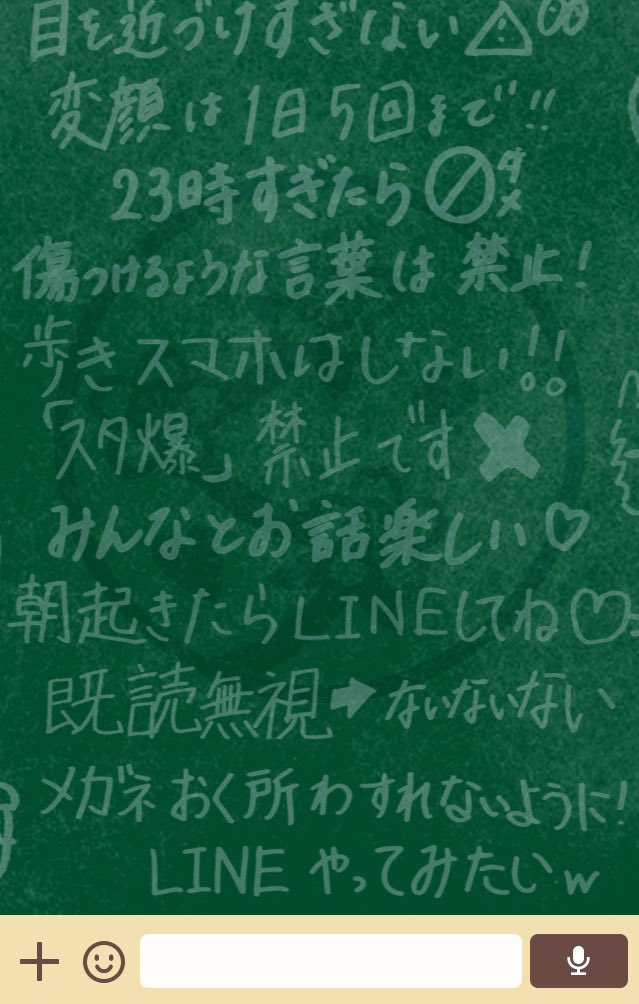 目を近づけすぎない
変顔は1日5回まで!!
23時すぎたらダメ
傷つけるような言葉は禁止!
歩きスマホはしない!!
「スタ爆」禁止です
みんなとお話楽しい♡
朝起きたらLINEしてね♡
既読無視➡ないないない
メガネおく所わすれないように!
LINEやってみたいw